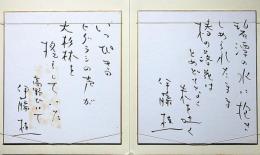 碧潭の水に抱き
しめられたまま
椿の落花は
とめどなく
朱を吐く
伊藤 桂一
いっぴきの
ヒグラシの声が
大杉林を
高野山にて
伊藤 桂一